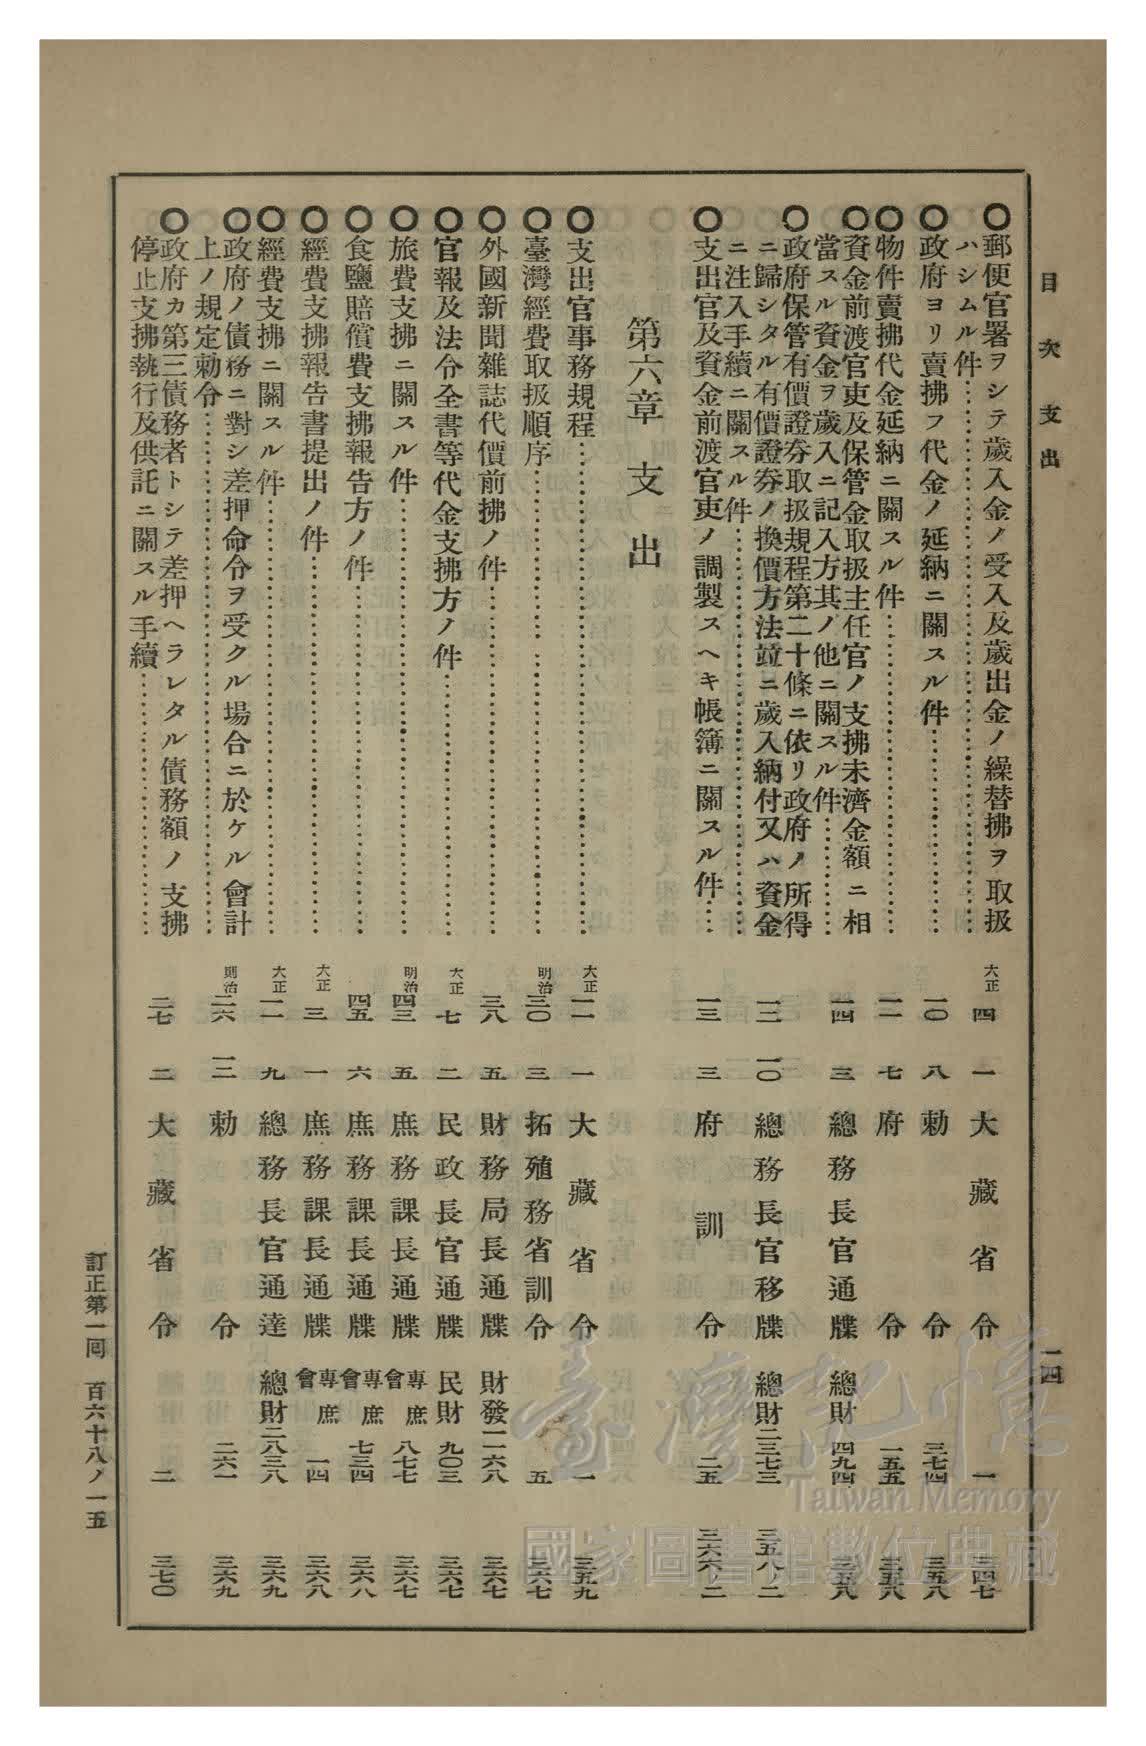 目次 支出
一四
○郵便官署ヲシテ歲入金ノ受入及歲出金ノ繰替拂ヲ取扱
ハシムル件……… 大正 四 一 大藏省令 一 三四七
○政府ヨリ賣拂フ代金ノ延納ニ關スル件……… 一〇 八 勅令 三七四 三五八
○物件賣拂代金延納ニ關スル件……… 一一 七 府令 一五五 三五八
○資金前渡官吏及保管金取扱主任官ノ支拂未濟金額ニ相
當スル資金ヲ歲入ニ記入方其ノ他ニ關スル件……… 一四 三 總務長官通牒 總財四九四 三五八
○政府保管有價證券取扱規程第二十條ニ依リ政府ノ所得
ニ歸シタル有價證券ノ換價方法竝ニ歲入納付又ハ資金
ニ注入手續ニ關スル件……… 一二 一〇 總務長官移牒 總財二三七三 三五八ノ二
○支出官及資金前渡官吏ノ調製スヘキ帳簿ニ關スル件…… 一三 三 府訓令 二五 三六六ノ二
第六章 支出
○支出官事務規程……… 大正 一一 一 大藏省令 一 三五九
○臺灣經費取扱順序……… 明治 三〇 三 拓殖務省訓令 五 三六七
○外國新聞雜誌代價前拂ノ件……… 三八 五 財務局長通牒 財發一一六八 三六七
○官報及法令全書等代金支拂方ノ件……… 大正 七 二 民政長官通牒 民財九〇三 三六七
○旅費支拂ニ關スル件……… 明治 四三 五 庶務課長通牒 專庶會八七七 三六七
○食鹽賠償費支拂報告方ノ件……… 四五 六 庶務課長通牒 專庶會七三四 三六八
○經費支拂報告書提出ノ件……… 大正 三 一 庶務課長通牒 專庶會一四 三六八
○經費支拂ニ關スル件……… 大正 一一 九 總務長官通達 總財二八三八 三六九
○政府ノ債務ニ對シ差押命令ヲ受クル場合ニ於ケル會計
上ノ規定勅令……… 明治 二六 一二 勅令 二六一 三六九
○政府カ第三債務者トシテ差押ヘラレタル債務額ノ支拂
停止支拂執行及供託ニ關スル手續……… 二七 二 大藏省令 二 三七〇
訂正第一囘 百六十八ノ一五
臺灣記憶
Taiwan Memory
國家圖書館數位典藏